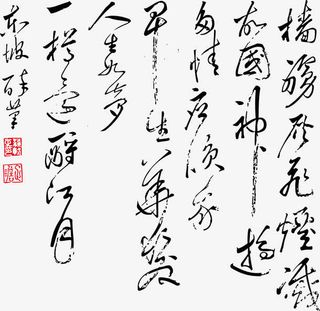 檣艣灰飛煙滅
故國神遊
多情應笑我
早生華髮
人生如夢
一樽還酹江月
東坡醉筆